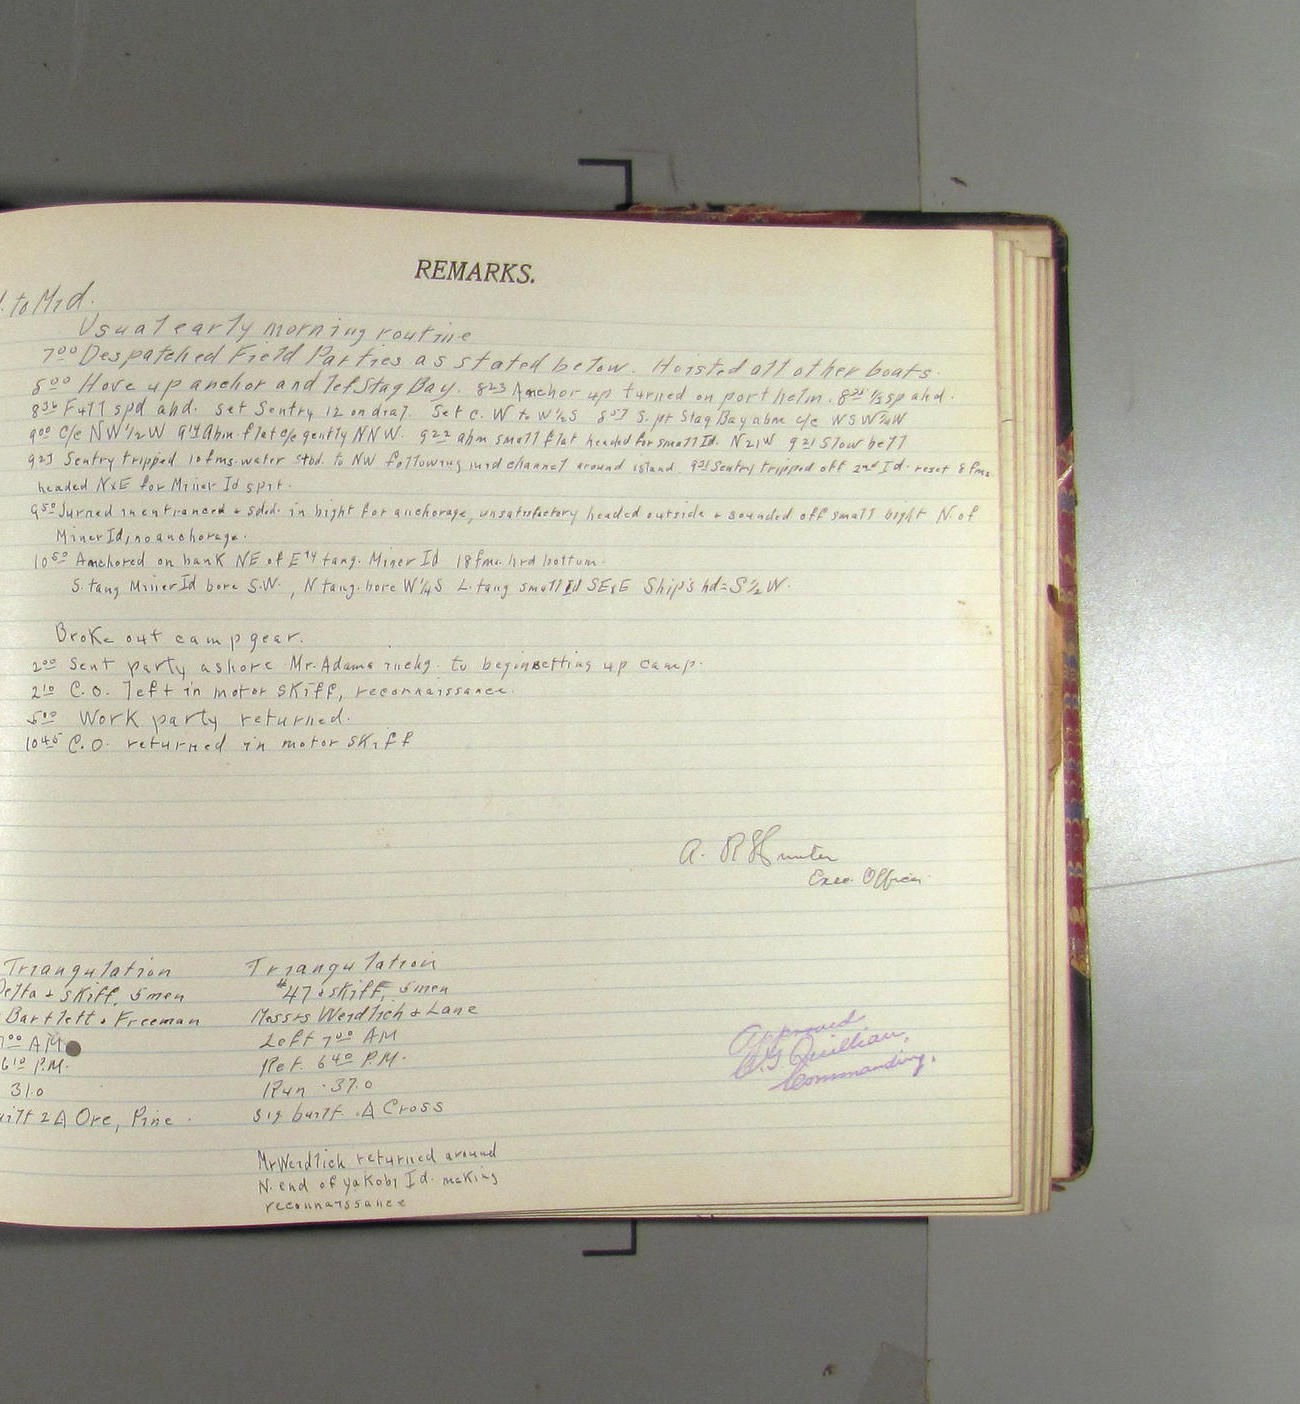 REMARKS.
to Mid.
Usual early morning routine
7⁰⁰ Despatched Field Parties as stated below. Hoisted all other boats.
8⁰⁰ Hove up anchor and left Stag Bay. 8²³ Anchor up turned on port helm. 8²⁵ ⅓ sp ahd.
8³⁶ Full spd ahd. set Sentry 12 on dial. Set c. W to W½S 8⁵⁷ S. pt Stag Bay abm c/c WSW¾W
9⁰⁰ c/c NW½W 9¹⁴ Abm. flat c/c gently NNW. 9²² abm small flat headed for small Id. N21W 9²¹ Slow bell
9²³ Sentry tripped 10 fms. water stbd. to NW following mid channel around island. 9³¹ Sentry tripped off 2nd Id. reset 8 fms.
headed NxE for Miner Id spit.
9⁵⁰ Turned in entrance + sded. in bight for anchorage, unsatisfactory headed outside + sounded off small bight N of
Miner Id, no anchorage.
10⁵⁰ Anchored on bank NE of Ely tang. Miner Id 18 fms. hrd bottom.
S. tang Miner Id bore S.W., N tang. bore W¼S L. tang small Id SExE Ship's hd = S½W.
Broke out camp gear.
2⁰⁰ Sent party ashore Mr. Adams in chg. to begin setting up camp.
2¹⁰ C.O. left in motor skiff, reconnaissance.
5⁰⁰ Work party returned.
10⁴⁵ C.O. returned in motor skiff
A. R Hunter
Exec. Officer
Triangulation Triangulation
Delta + skiff, 5 men #47 + skiff, 5 men
Bartlett + Freeman Messrs Weidlich + Lane
7⁰⁰ AM Left 7⁰⁰ AM
6¹⁰ P.M. Ret. 6⁴⁰ P.M.
31.0 Run 37.0
built 2 Δ Ore, Pine. Sig built Δ Cross
Mr Weidlich returned around
N. end of Yakobi Id. making
reconnaissance
Approved
Quillian,
Commanding.